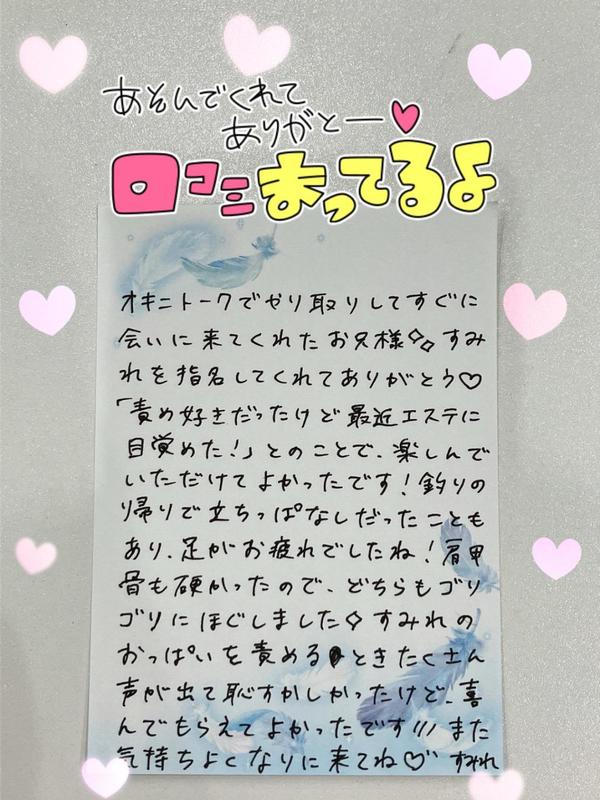 あそんでくれて
ありがとー♥
口コミまってるよ
オキニトークでやり取りしてすぐに
会いに来てくれたお兄様✧✧すみ
れを指名してくれてありがとう♡
「責め好きだったけど最近エステに
目覚めた!」とのことで、楽しんで
いただけてよかったです!釣りの
帰りで立ちっぱなしだったことも
あり、足がお疲れでしたね!肩甲
骨も硬かったので、どちらもゴリ
ゴリにほぐしました✧すみれの
おっぱいを責めるときたくさん
声が出て恥ずかしかったけど、喜
んでもらえてよかったです!!!また
気持ちよくなりに来てね♡すみれ